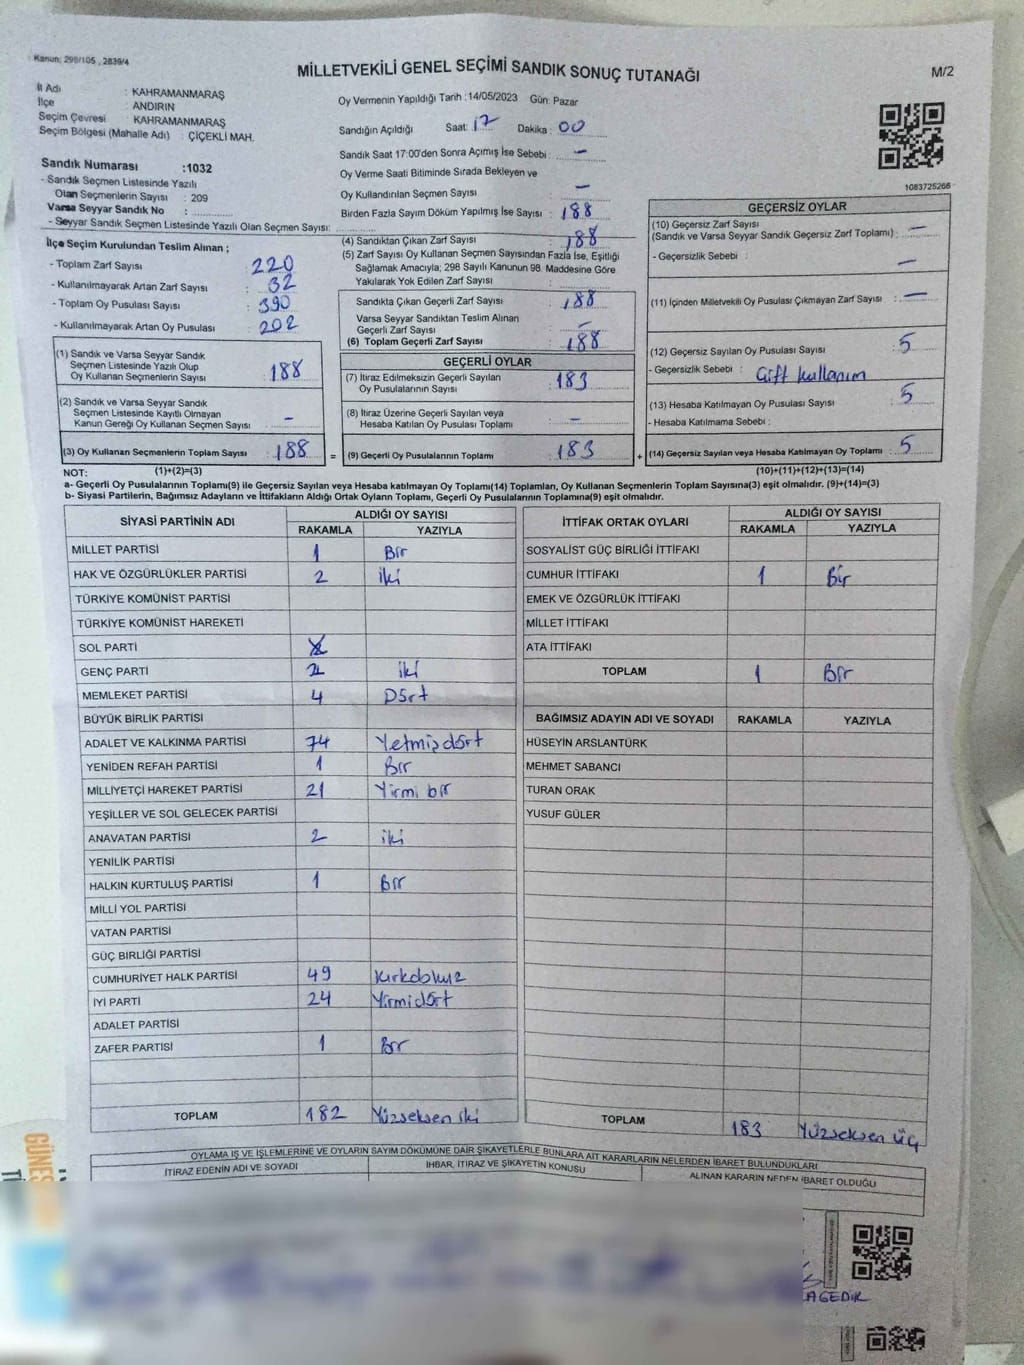 Kanun: 298/105 , 2839/4
MİLLETVEKİLİ GENEL SEÇİMİ SANDIK SONUÇ TUTANAĞI
M/2
İl Adı : KAHRAMANMARAŞ
İlçe : ANDIRIN
Seçim Çevresi : KAHRAMANMARAŞ
Seçim Bölgesi (Mahalle Adı) : ÇİÇEKLİ MAH.
Sandık Numarası :1032
- Sandık Seçmen Listesinde Yazılı
Olan Seçmenlerin Sayısı : 209
Varsa Seyyar Sandık No :
- Seyyar Sandık Seçmen Listesinde Yazılı Olan Seçmen Sayısı:
Oy Vermenin Yapıldığı Tarih :14/05/2023 Gün: Pazar
Sandığın Açıldığı Saat: 17 Dakika: 00
Sandık Saat 17:00'den Sonra Açılmış İse Sebebi : -
Oy Verme Saati Bitiminde Sırada Bekleyen ve
Oy Kullandırılan Seçmen Sayısı -
Birden Fazla Sayım Döküm Yapılmış İse Sayısı : 188
1083725266
İlçe Seçim Kurulundan Teslim Alınan ;
- Toplam Zarf Sayısı : 220
- Kullanılmayarak Artan Zarf Sayısı : 32
- Toplam Oy Pusulası Sayısı : 390
- Kullanılmayarak Artan Oy Pusulası : 202
(1) Sandık ve Varsa Seyyar Sandık
Seçmen Listesinde Yazılı Olup
Oy Kullanan Seçmenlerin Sayısı : 188
(2) Sandık ve Varsa Seyyar Sandık
Seçmen Listesinde Kayıtlı Olmayan
Kanun Gereği Oy Kullanan Seçmen Sayısı : -
(3) Oy Kullanan Seçmenlerin Toplam Sayısı : 188
(4) Sandıktan Çıkan Zarf Sayısı : 188
(5) Zarf Sayısı Oy Kullanan Seçmen Sayısından Fazla İse, Eşitliği
Sağlamak Amacıyla; 298 Sayılı Kanunun 98. Maddesine Göre
Yakılarak Yok Edilen Zarf Sayısı :
Sandıkta Çıkan Geçerli Zarf Sayısı : 188
Varsa Seyyar Sandıktan Teslim Alınan
Geçerli Zarf Sayısı : -
(6) Toplam Geçerli Zarf Sayısı : 188
GEÇERLİ OYLAR
(7) İtiraz Edilmeksizin Geçerli Sayılan
Oy Pusulalarının Sayısı : 183
(8) İtiraz Üzerine Geçerli Sayılan veya
Hesaba Katılan Oy Pusulası Toplamı : -
= (9) Geçerli Oy Pusulalarının Toplamı : 183 +
GEÇERSİZ OYLAR
(10) Geçersiz Zarf Sayısı
(Sandık ve Varsa Seyyar Sandık Geçersiz Zarf Toplamı) : -
- Geçersizlik Sebebi : -
(11) İçinden Milletvekili Oy Pusulası Çıkmayan Zarf Sayısı : -
(12) Geçersiz Sayılan Oy Pusulası Sayısı : 5
- Geçersizlik Sebebi : Çift kullanım
(13) Hesaba Katılmayan Oy Pusulası Sayısı : 5
- Hesaba Katılmama Sebebi :
(14) Geçersiz Sayılan veya Hesaba Katılmayan Oy Toplamı : 5
NOT: (1)+(2)=(3) (10)+(11)+(12)+(13)=(14)
a- Geçerli Oy Pusulalarının Toplamı(9) ile Geçersiz Sayılan veya Hesaba katılmayan Oy Toplamı(14) Toplamları, Oy Kullanan Seçmenlerin Toplam Sayısına(3) eşit olmalıdır. (9)+(14)=(3)
b- Siyasi Partilerin, Bağımsız Adayların ve İttifakların Aldığı Ortak Oyların Toplamı, Geçerli Oy Pusulalarının Toplamına(9) eşit olmalıdır.
SİYASİ PARTİNİN ADI ALDIĞI OY SAYISI
RAKAMLA YAZIYLA
MİLLET PARTİSİ 1 Bir
HAK VE ÖZGÜRLÜKLER PARTİSİ 2 iki
TÜRKİYE KOMÜNİST PARTİSİ
TÜRKİYE KOMÜNİST HAREKETİ
SOL PARTİ
GENÇ PARTİ 2 iki
MEMLEKET PARTİSİ 4 Dört
BÜYÜK BİRLİK PARTİSİ
ADALET VE KALKINMA PARTİSİ 74 Yetmişdört
YENİDEN REFAH PARTİSİ 1 Bir
MİLLİYETÇİ HAREKET PARTİSİ 21 Yirmi bir
YEŞİLLER VE SOL GELECEK PARTİSİ
ANAVATAN PARTİSİ 2 iki
YENİLİK PARTİSİ
HALKIN KURTULUŞ PARTİSİ 1 Bir
MİLLİ YOL PARTİSİ
VATAN PARTİSİ
GÜÇ BİRLİĞİ PARTİSİ
CUMHURİYET HALK PARTİSİ 49 Kırkdokuz
İYİ PARTİ 24 Yirmidört
ADALET PARTİSİ
ZAFER PARTİSİ 1 Bir
TOPLAM 182 Yüzseksen iki
İTTİFAK ORTAK OYLARI ALDIĞI OY SAYISI
RAKAMLA YAZIYLA
SOSYALİST GÜÇ BİRLİĞİ İTTİFAKI
CUMHUR İTTİFAKI 1 Bir
EMEK VE ÖZGÜRLÜK İTTİFAKI
MİLLET İTTİFAKI
ATA İTTİFAKI
TOPLAM 1 Bir
BAĞIMSIZ ADAYIN ADI VE SOYADI RAKAMLA YAZIYLA
HÜSEYİN ARSLANTÜRK
MEHMET SABANCI
TURAN ORAK
YUSUF GÜLER
TOPLAM 183 Yüzseksen üç
OYLAMA İŞ VE İŞLEMLERİNE VE OYLARIN SAYIM DÖKÜMÜNE DAİR ŞİKAYETLERLE BUNLARA AİT KARARLARIN NELERDEN İBARET BULUNDUKLARI
İTİRAZ EDENİN ADI VE SOYADI İHBAR, İTİRAZ VE ŞİKAYETİN KONUSU ALINAN KARARIN NEDEN İBARET OLDUĞU
AGEDİK
GÜNEŞ